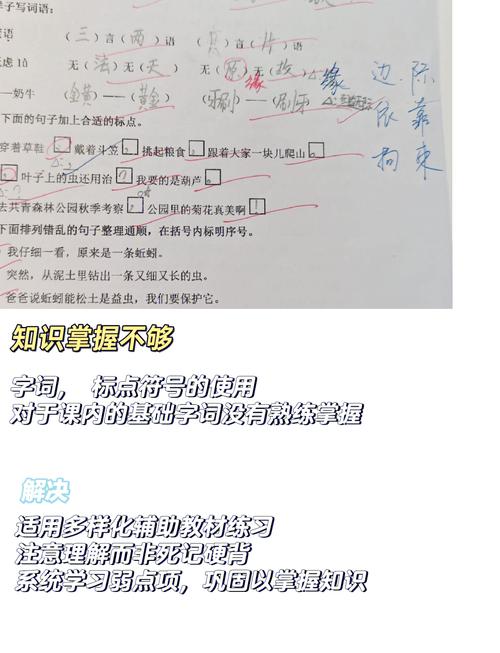 样子写词语：
（三）言（两）语 （只）言（片）语
无虑 无（法）无（天） 无（原）无（故） 缘 缘
——奶牛 （金黄）——（黄金） （牙刷）——（刷牙）
边 际
依 靠
拘 束
下面的句子加上合适的标点。
穿着草鞋 戴着斗笠 挑起粮食 跟着大家一块儿爬山
叶子上的虫还用治？我要的是葫芦
去共青森林公园秋季考察 公园里的菊花真美啊！
下面排列错乱的句子整理通顺，在括号内标明序号。
）我仔细一看，原来是一条蚯蚓。
突然，从泥土里钻出一条又细又长的虫。
爸爸说蚯蚓能松土是益虫，我们要保护它。
知识掌握不够
字词， 标点符号的使用
对于课内的基础字词没有熟练掌握
解决
适用多样化辅助教材练习
注意理解而非死记硬背
系统学习弱点项，巩固以掌握知识